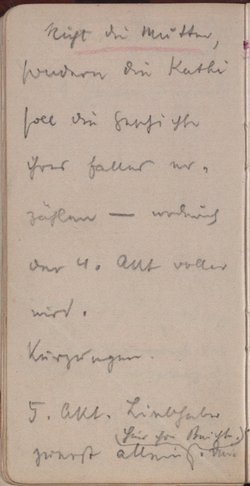 Nicht die Mutter,
sondern die Kathi
soll die Geschichte
ihres Falles er-
zählen — wodurch
der 4. Akt voller
wird.
Kürzungen.
5. Akt. Liebhaber
(für ihn Beichte.)
zuerst allein.